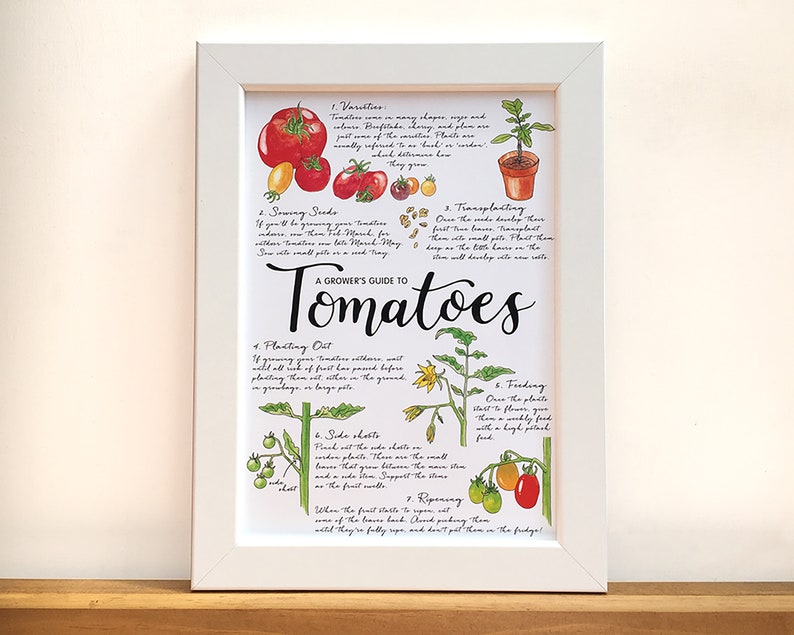 1. Varieties:
Tomatoes come in many shapes, sizes and
colours. Beefstake, cherry, and plum are
just some of the varieties. Plants are
usually referred to as 'bush' or 'cordon',
which determine how
they grow.
2. Sowing Seeds
If you'll be growing your tomatoes
indoors, sow them Feb-March, for
outdoor tomatoes sow late March-May.
Sow into small pots or a seed tray.
3. Transplanting
Once the seeds develop their
first true leaves, transplant
them into small pots. Plant them
deep as the little hairs on the
stem will develop into new roots.
A GROWER'S GUIDE TO
Tomatoes
4. Planting Out
If growing your tomatoes outdoors, wait
until all risk of frost has passed before
planting them out, either in the ground,
in growbags, or large pots.
5. Feeding
Once the plants
start to flower, give
them a weekly feed
with a high potash
feed.
6. Side shoots
Pinch out the side shoots on
cordon plants. These are the small
leaves that grow between the main stem
and a side stem. Support the stems
as the fruit swells.
side
shoot
7. Ripening
When the fruit starts to ripen, cut
some of the leaves back. Avoid picking them
until they're fully ripe, and don't put them in the fridge!